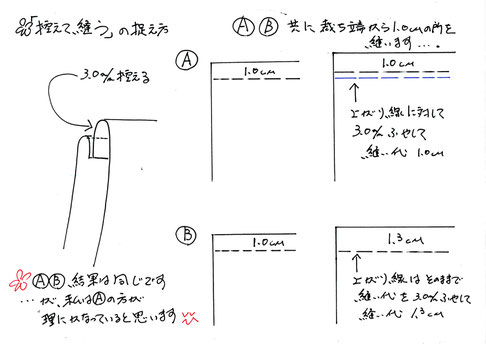 「控えて、縫う」の捉え方
Ⓐ Ⓑ 共に 裁ち端から1.0cmの所を
縫います…。
3.0㎜控える
Ⓐ
1.0cm
1.0cm
↑
上がり線に対して
3.0㎜ふやして
縫い代 1.0cm
Ⓑ
1.0cm
1.3cm
↑
上がり線はそのままで
縫い代を3.0㎜ふやして
縫い代 1.3cm
ⒶⒷ、結果は同じです
…が、私はⒶの方が
理にかなっていると思います